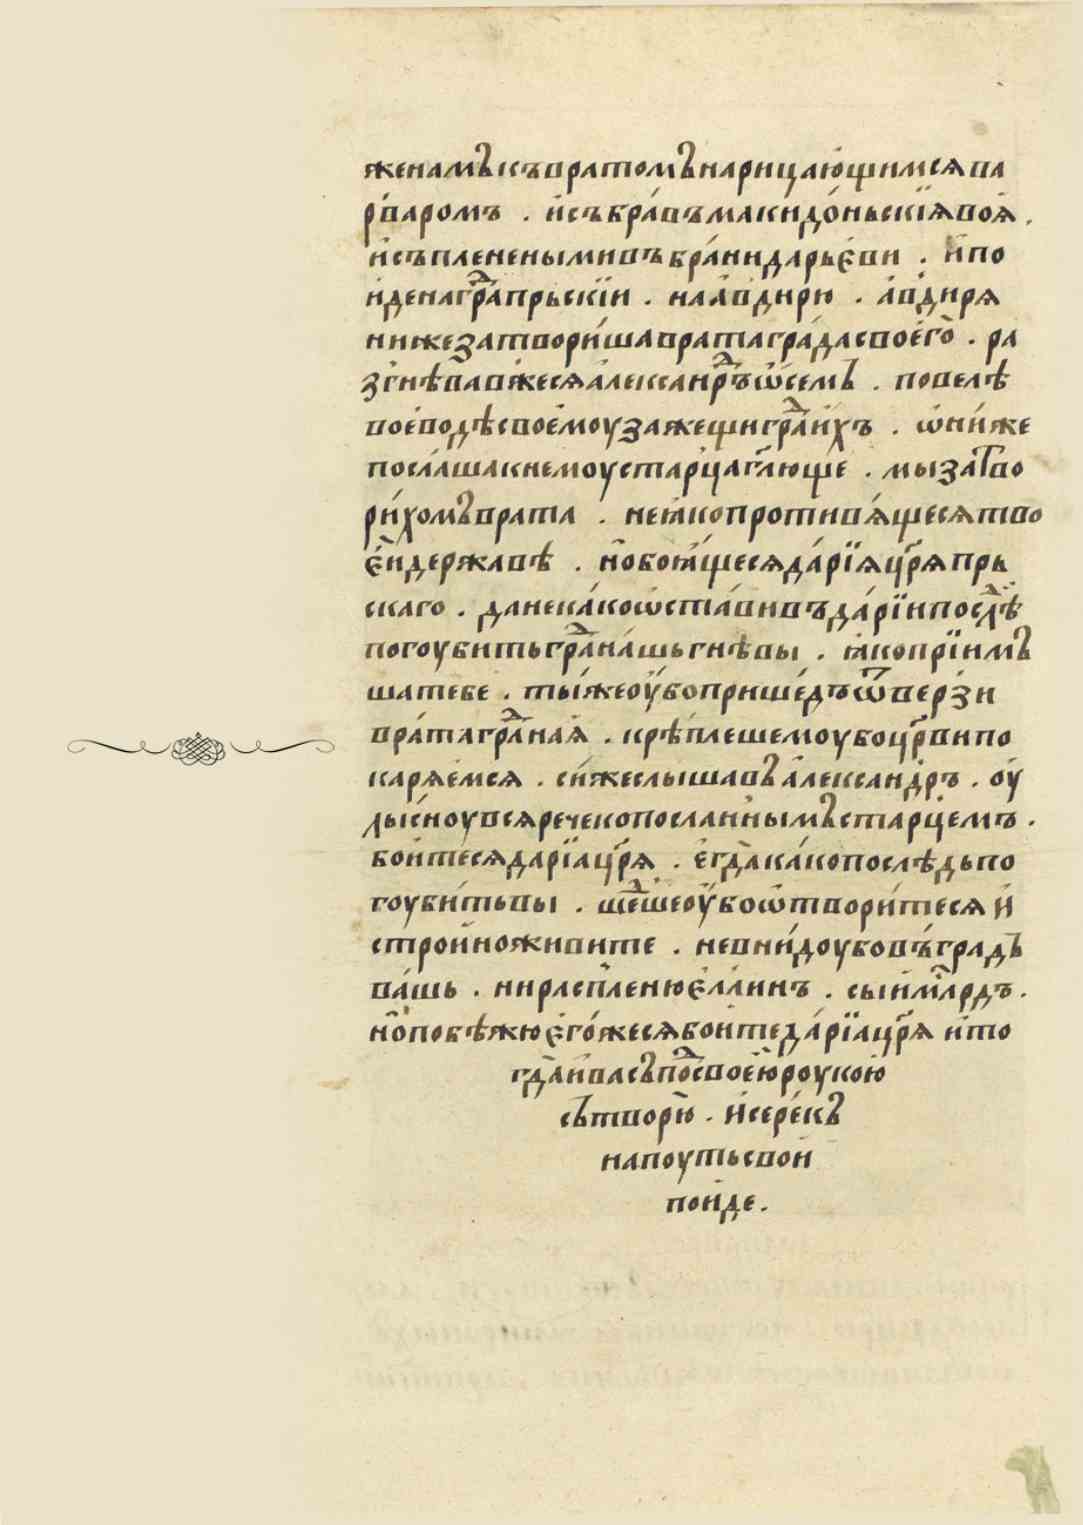 женамъ къ вратомъ нарицающимся ва
рваромъ . и събравъ македоньскїя воя .
и съ пленеными въ брани дарьеви . и по
иде на гра̑ прьскїи . на авдирю . авдиря
ни же затвориша врата града своего . ра
згнѣвав же ся алексанрⷣъ ѡ семъ . повелѣ
воеводѣ своемоу зажещи граⷣ ихъ . ѡни же
послаша к немоу старца гл҃юще . мы затво
рихомъ врата . не ꙗко противящеся тво
еи державѣ . но боꙗщеся дарїя цр҃я прь
скаго . да не како ѡставивъ дарїи послѣⷣ
погоубить граⷣ нашь гнѣвы . ꙗко прїимъ
ша тебе . ты же оубо пришедъ ѿверзи
врата граⷣная . крѣплешемоу бо цр҃ви по
каряемся . си же слышавъ александръ . оу
лысноувся рече ко посланнымъ старцемъ .
боитеся дарїа цр҃я . егда како послѣдь по
гоубить вы . шеⷣше оубо ѡтворитеся и
стройно живите . не вниⷣдоу бо въ градъ
вашь . ни расплению еллинъ . сыи млⷭрдъ .
но побѣжю его же ся боите дарїа цр҃я и то
гда и вас поⷣ своею роукою
сътворю . и се рекъ
на поуть свои
поиде .